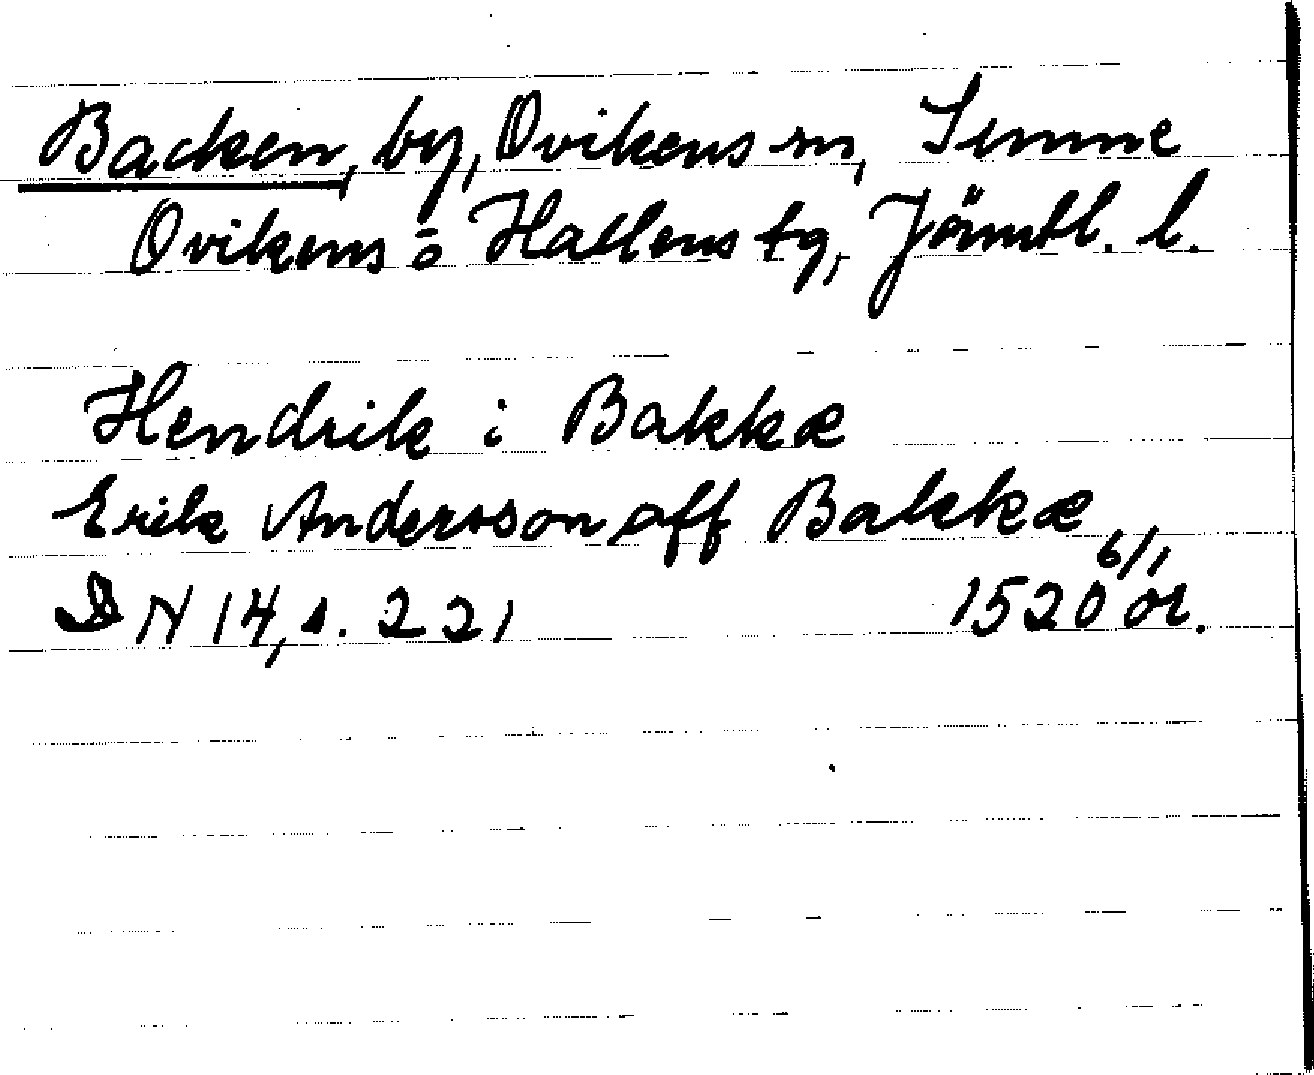 Backen, by, Ovikens sn, Sunne
Ovikens o Hallens tg, Jämtl. l.
Hendrik i Bakkæ
Erik Andersson aff Bakkæ
DN 14, s. 221 1520 6/1 or.